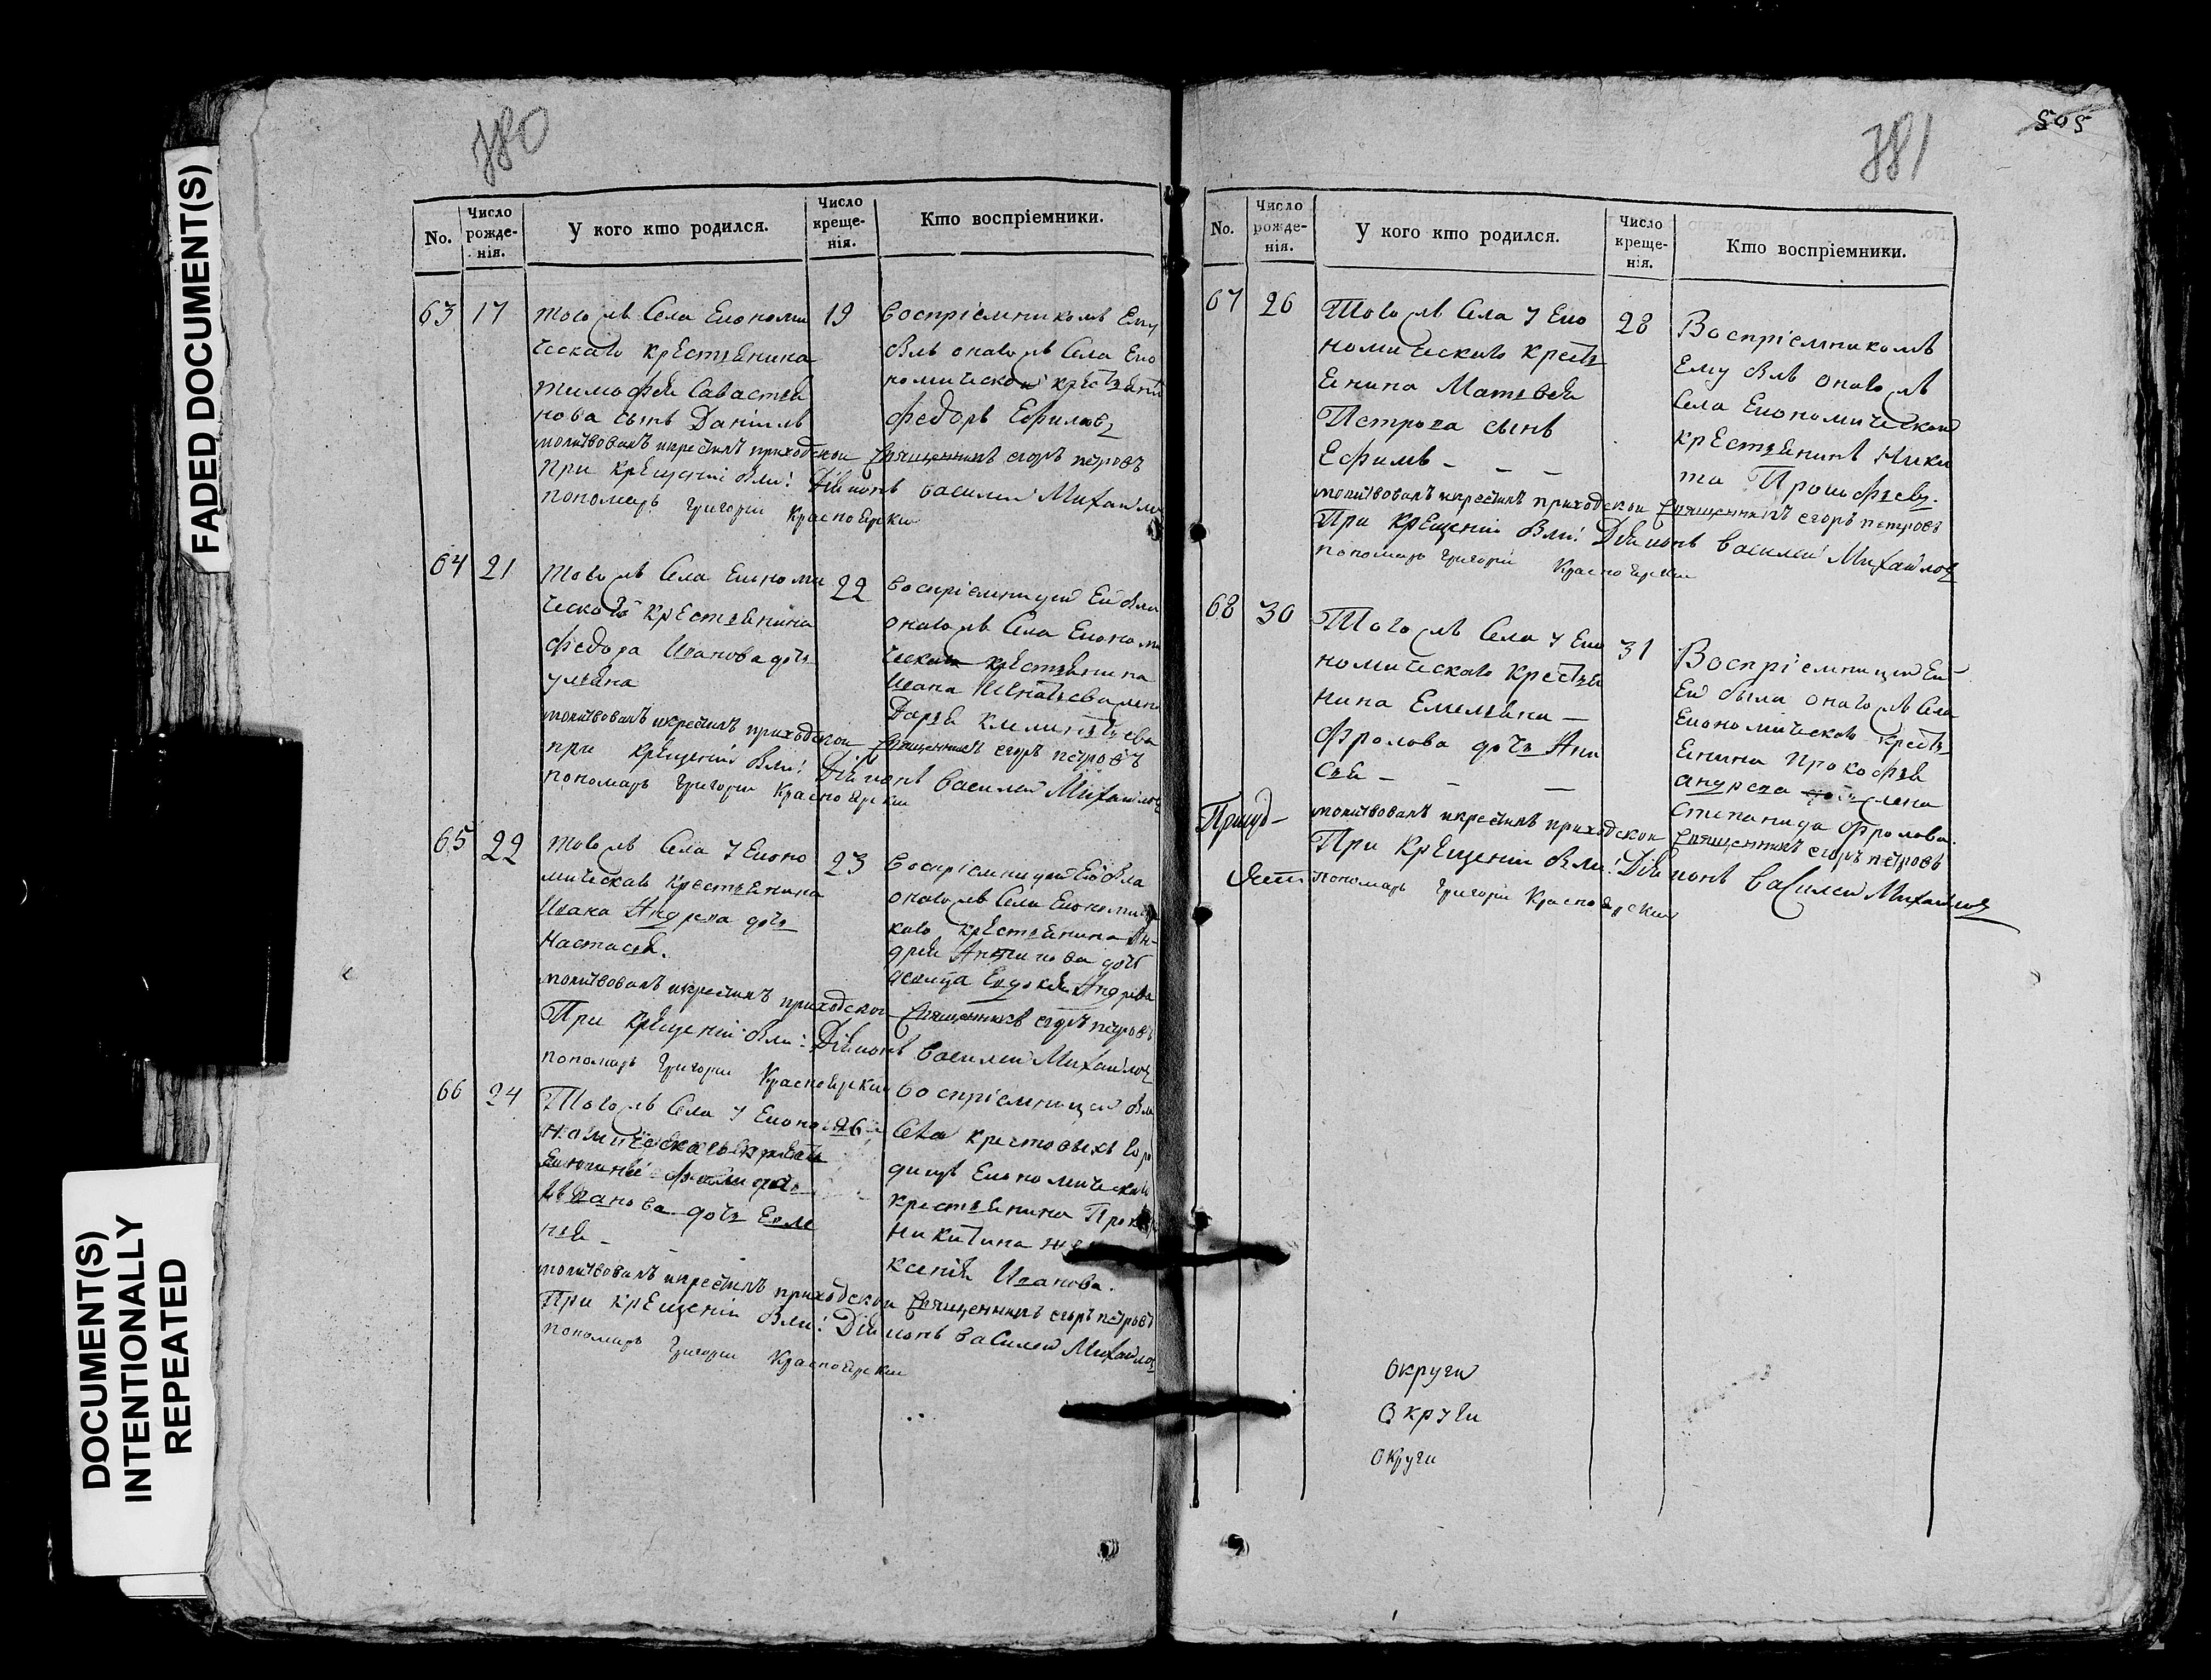 FADED DOCUMENT(S)
DOCUMENT(S)
INTENTIONALLY
REPEATED
780
No.
Число
рожде-
нія.
У кого кто родился.
Число
креще-
нія.
Кто воспріемники.
63 17
того жъ Села Економи
ческаго крестьянина
тимофея Савастья
нова сынъ Даніилъ
19
воспріемникомъ Ему
былъ онаго жъ Села Еко
номической крестьянинъ
федоръ Ефимовъ
молитвовалъ икрестилъ приходской священникъ егоръ петровъ
При крещеніи были: Діяконъ василей Михайло
пономарь григорій Красноярскии
64 21
того жъ Села Економи
ческаго крестьянина
федора Иванова дочь
ульяна
22
воспріемницей Ей была
онаго жъ Села Економи
ческаго крестьянина
Ивана Игнатьева жена
Дарья клименьтьева
молитвовалъ икрестилъ приходской священникъ егоръ петровъ
при крещеніи были: Діяконъ василей Михайловъ
пономарь григорій Красноярскии
65 22
того жъ Села Уеконо
мическаго крестьянина
Ивана Андреева дочь
Настасья.
23
воспріемницей Ей была
онаго жъ Села Економиче
каго крестьянина Ан-
дрея дочь
девица Евдокия Андреева
молитвовалъ икрестилъ приходской священникъ егоръ петровъ
При крещеніи были: Діяконъ василей Михайловъ
пономарь григорій Красноярскии
66 24
Того жъ Села Уеконо
номическаго крестья
Иванова дочь
26
воспріемницей была
Села крестовыхъ Горо
дищъ Економическаго
крестьянина
Никитина
ксенія Иванова.
молитвовалъ икрестилъ приходской священникъ егоръ петровъ
При крещеніи были: Діяконъ василей Михайловъ
пономарь григорій Красноярскии
781
505
No.
Число
рожде-
нія.
У кого кто родился.
Число
креще-
нія.
Кто воспріемники.
67 26
Того жъ Села Уеко
номическаго кресть
янина Матвея
Петрова сынъ
Ефимъ - - -
28
Воспріемникомъ
Ему былъ онаго жъ
Села Економической
крестьянинъ Ники
та Прокофьевъ.
молитвовалъ икрестилъ приходской священникъ егоръ петровъ
При крещеніи были: Діяконъ василей Михайловъ
пономарь григорій Красноярскии
68 30
Того жъ Села Уеко
номическаго крестья
нина Емельяна -
Фролова дочь Ани
сья - - -
31
Воспріемницей Ей
Ей была онаго жъ Села
Економическаго кресть
янина Прокофья
андреева жена
Степанида Фролова.
молитвовалъ икрестилъ приходской священникъ егоръ петровъ
При крещеніи были: Діяконъ василей Михайловъ
пономарь григорій Красноярскии
округи
округи
округи